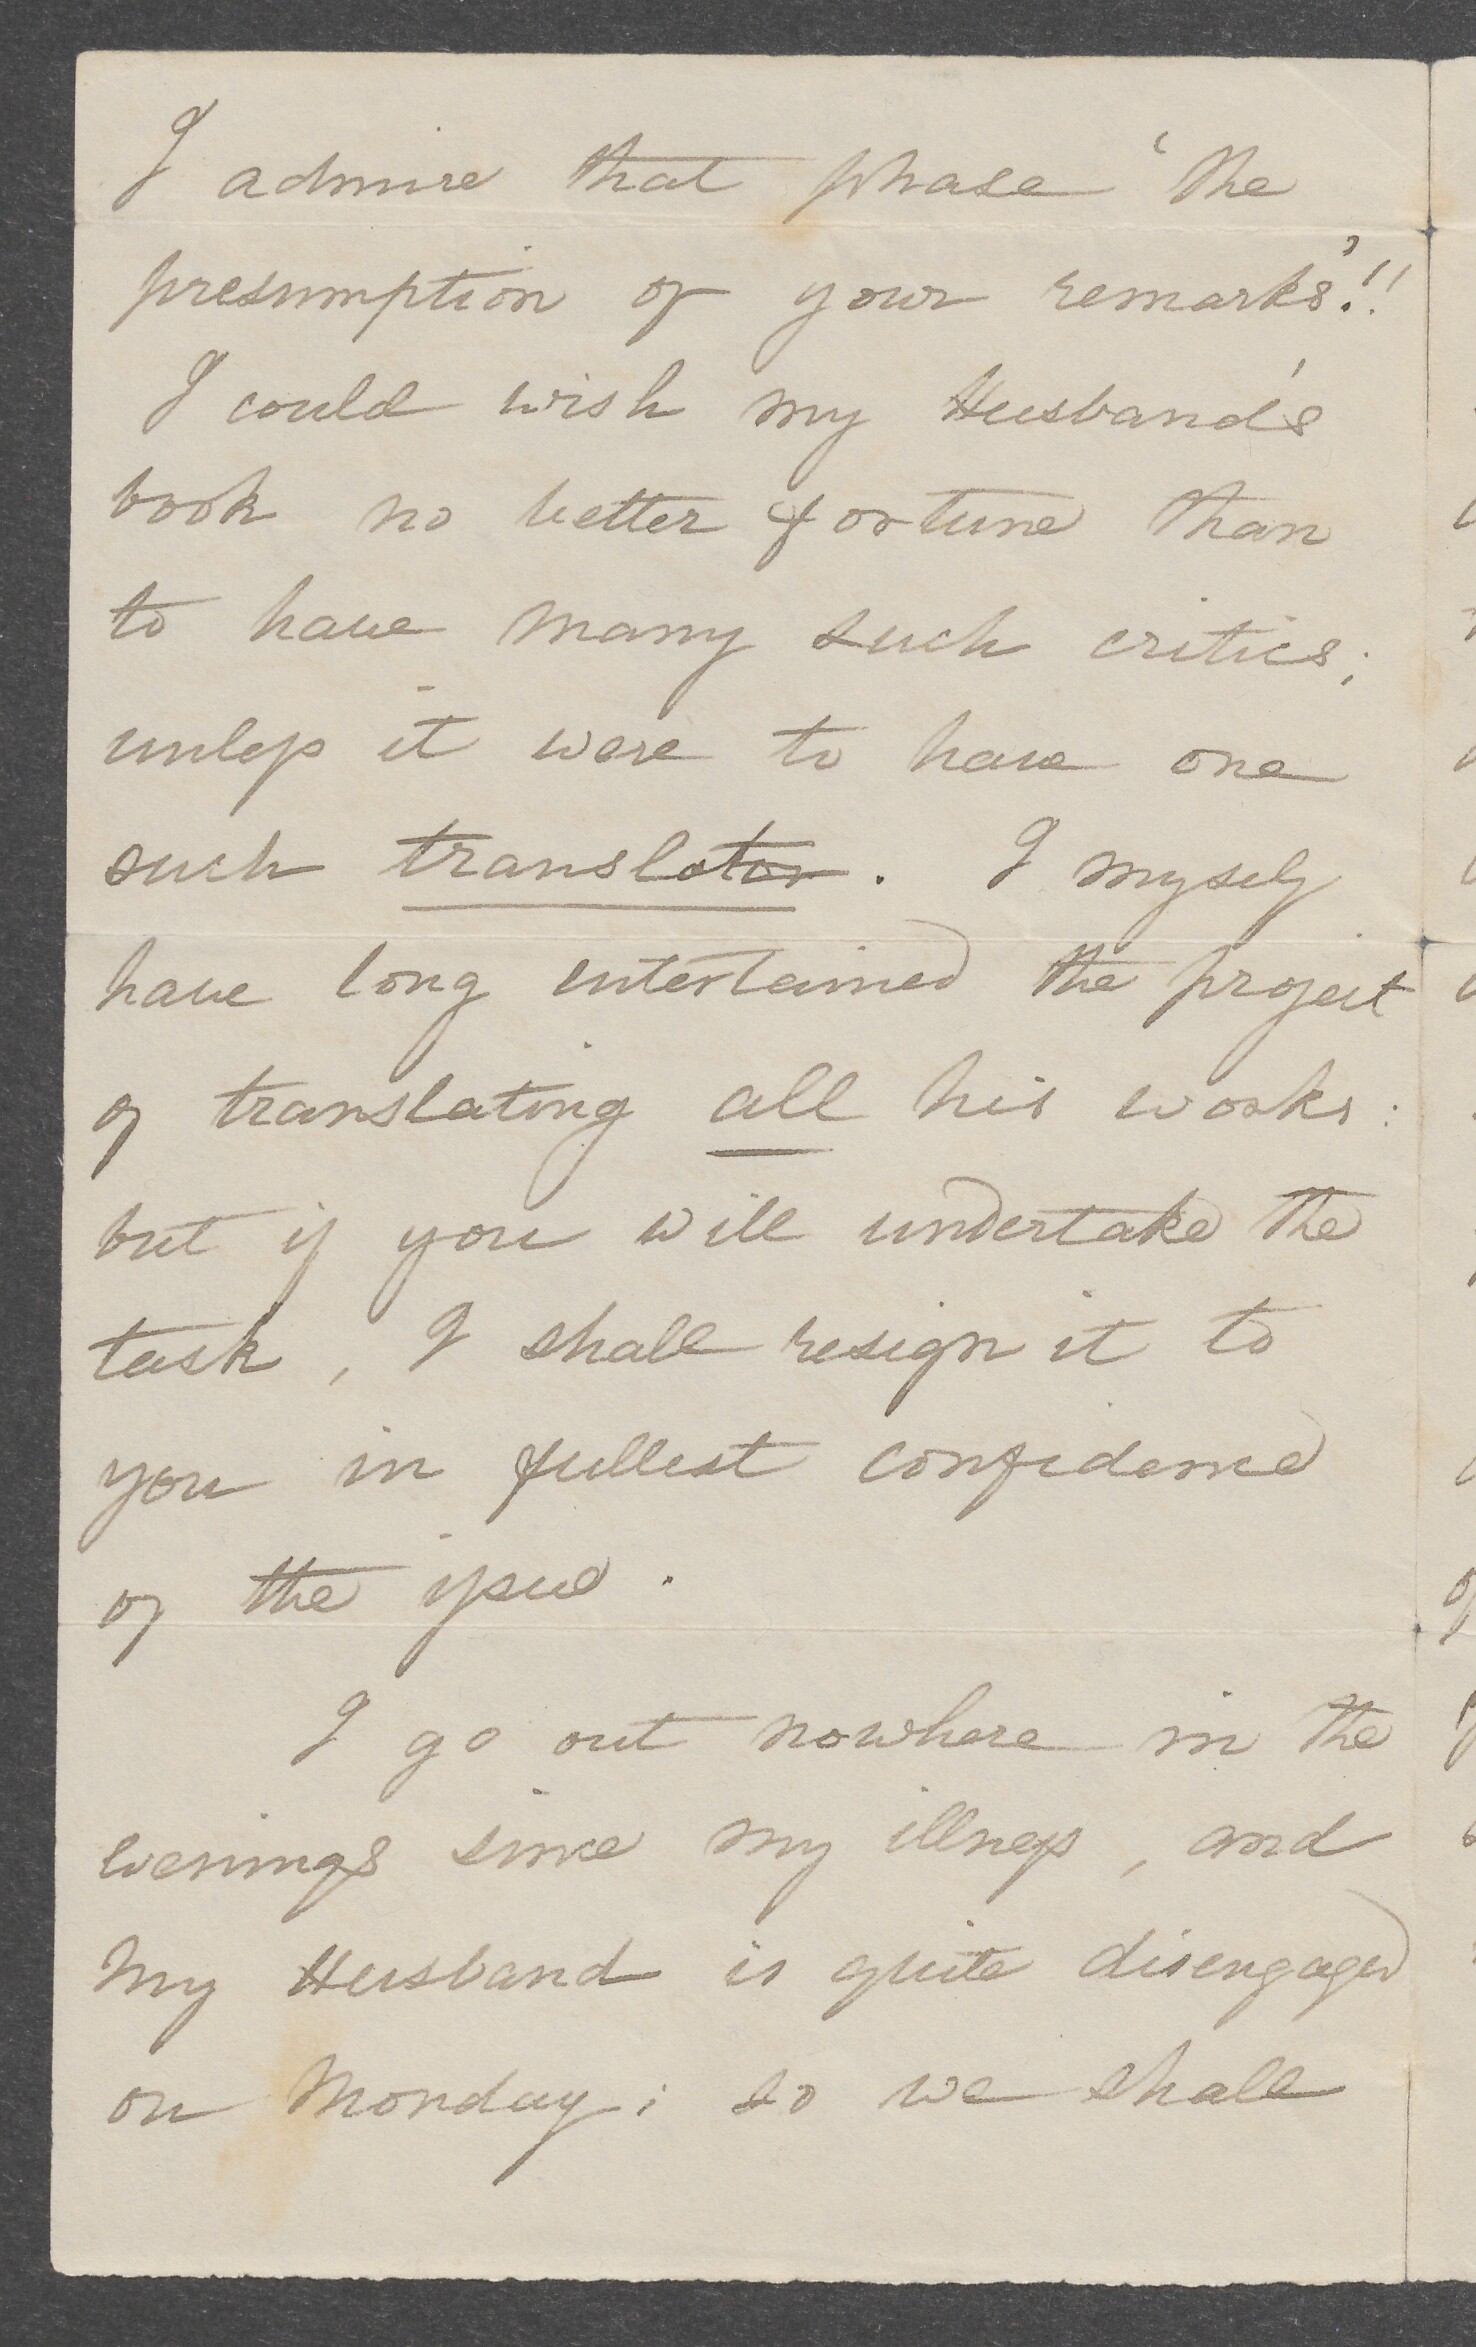 I admire that phase 'the
presumption of your remarks'!!
I could wish my Husband's
book no better fortune than
to have many such critics;
unless it were to have one
such translator. I myself
have long entertained the project
of translating all his works:
but if you will undertake the
task, I shall resign it to
you in fullest confidence
of the issue.
I go out nowhere in the
evenings since my illness, and
my Husband is quite disengaged
on Monday; so we shall